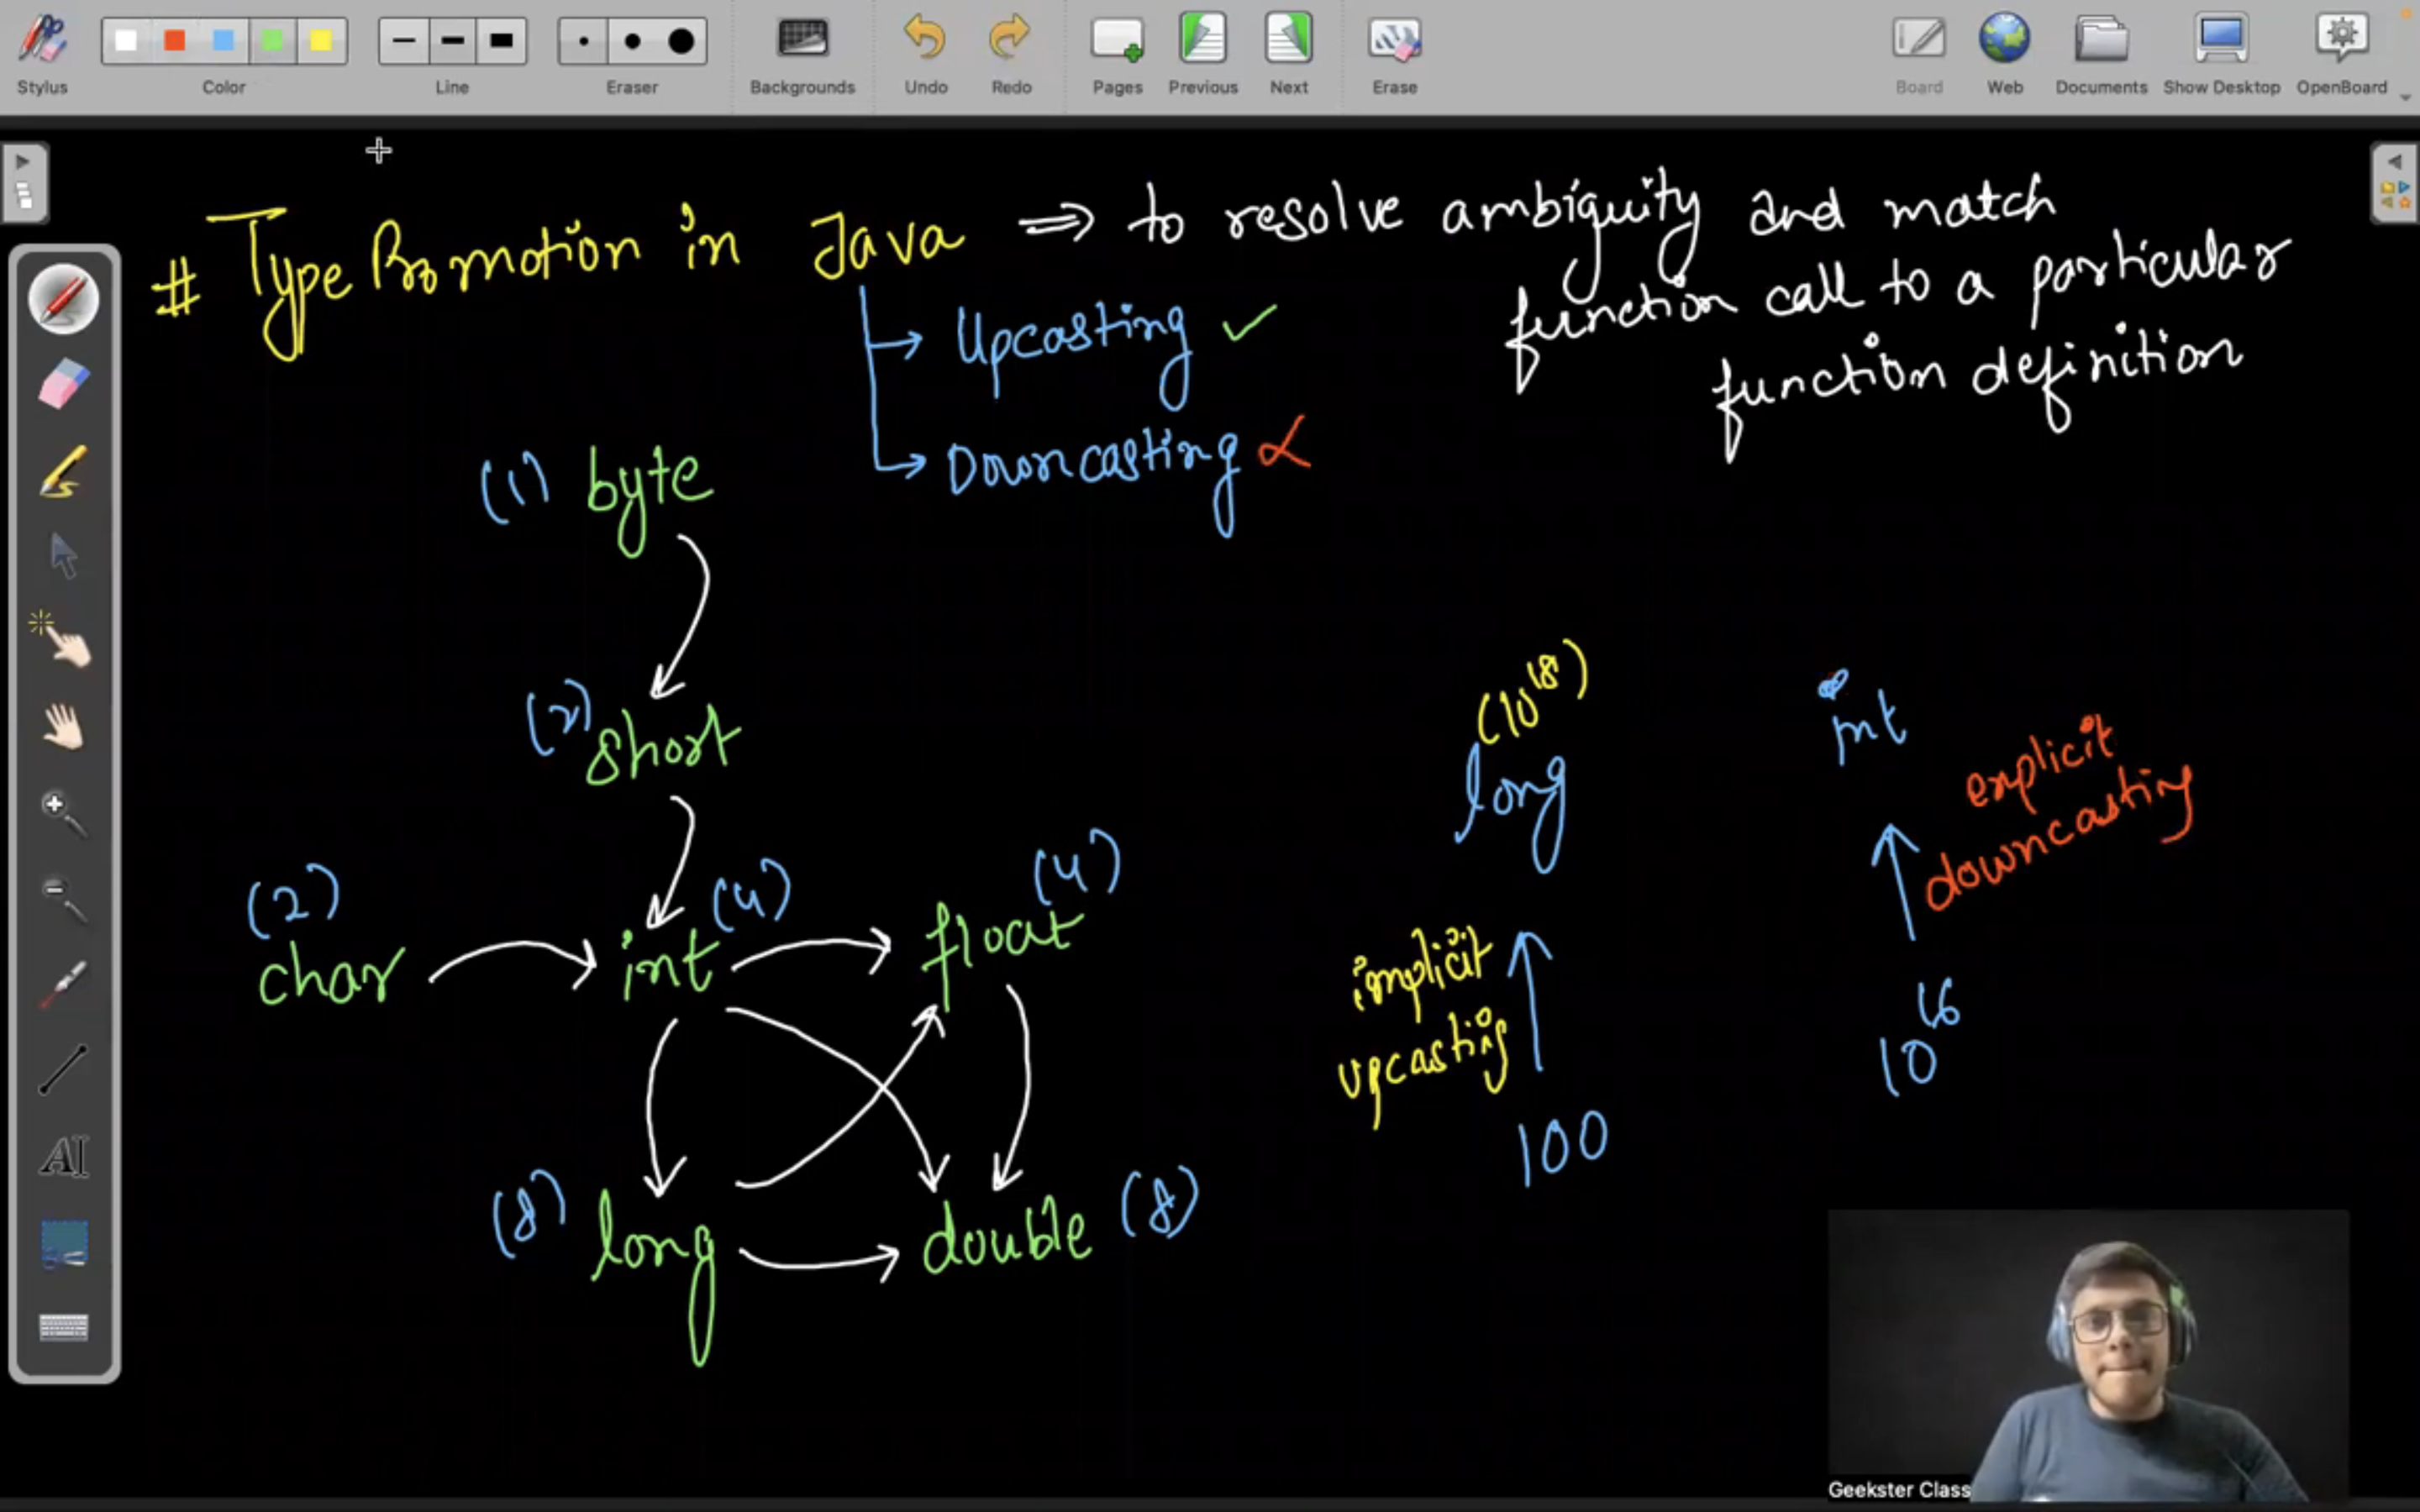 Stylus
Color
Line
Eraser
Backgrounds
Undo
Redo
Pages
Previous
Next
Erase
Board
Web
Documents
Show Desktop
OpenBoard
# Type Promotion in Java ⇒ to resolve ambiguity and match
function call to a particular
function definition
→ Upcasting ✓
→ Downcasting
(1) byte
(2) short
(2)
char
int (4)
float (4)
(8) long
double (8)
(10^18)
long
implicit
upcasting
100
int
explicit
downcasting
10^16
AI
Geekster Class